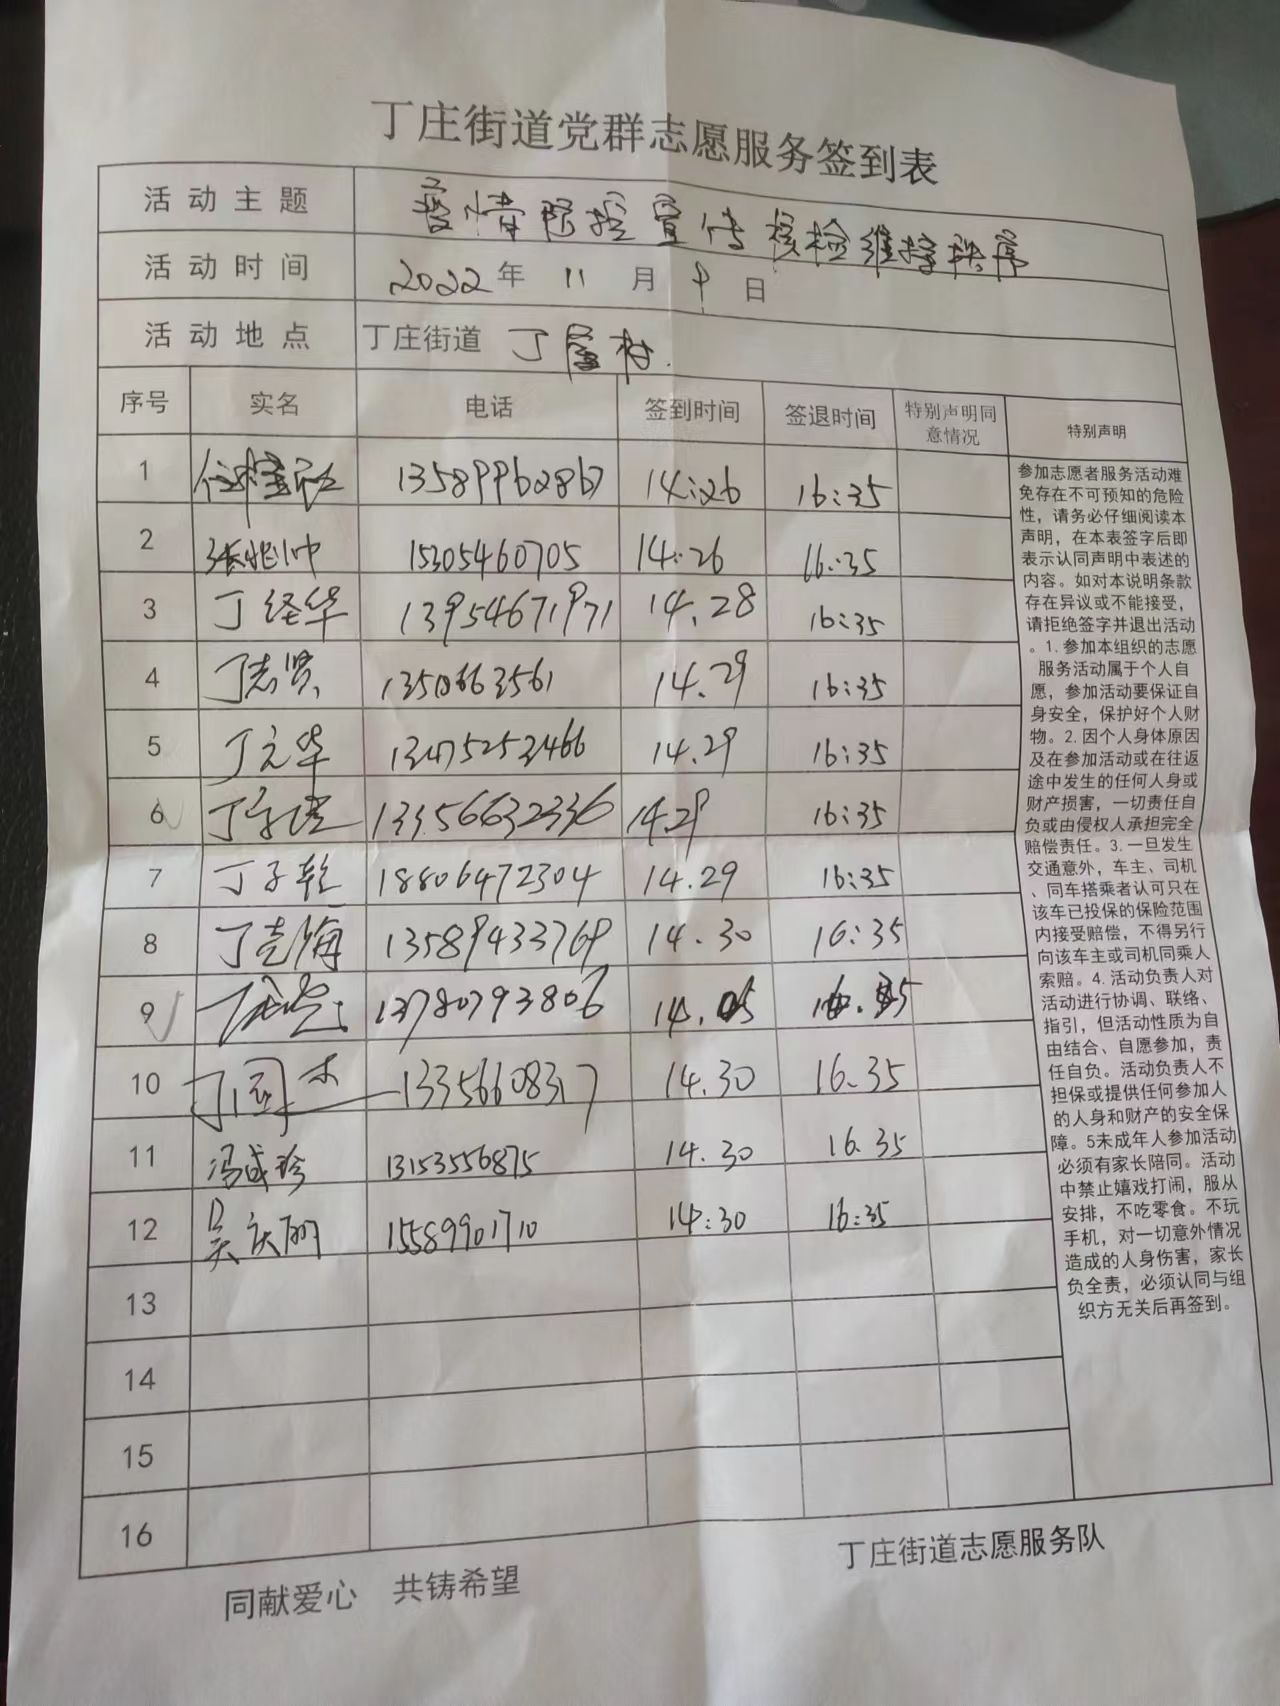 丁庄街道党群志愿服务签到表
活动主题 疫情防控宣传核检维持秩序
活动时间 2022年 11 月 9 日
活动地点 丁庄街道 丁屋村.
序号 实名 电话 签到时间 签退时间 特别声明同意情况 特别声明
1 13589962867 14:26 16:35
2 张兆帅 15305460705 14:26 16:35
3 丁经华 13954671971 14.28 16:35
4 丁志贤 14.29 16:35
5 丁元华 13475252466 14.29 16:35
6 13356632336 14.29 16:35
7 丁子乾 18806472304 14.29 16:35
8 丁克海 13589433769 14.30 16:35
9 13780793806
10 丁国杰 13356608317 14.30 16.35
11 冯成珍 13153556875 14.30 16.35
12 吴庆丽 15589901710 14:30 16:35
13
14
15
16
参加志愿者服务活动难
免存在不可预知的危险
性，请务必仔细阅读本
声明，在本表签字后即
表示认同声明中表述的
内容。如对本说明条款
存在异议或不能接受，
请拒绝签字并退出活动
。1.参加本组织的志愿
服务活动属于个人自
愿，参加活动要保证自
身安全，保护好个人财
物。2.因个人身体原因
及在参加活动或在往返
途中发生的任何人身或
财产损害，一切责任自
负或由侵权人承担完全
赔偿责任。3.一旦发生
交通意外，车主、司机
、同车搭乘者认可只在
该车已投保的保险范围
内接受赔偿，不得另行
向该车主或司机同乘人
索赔。4.活动负责人对
活动进行协调、联络、
指引，但活动性质为自
由结合、自愿参加，责
任自负。活动负责人不
担保或提供任何参加人
的人身和财产的安全保
障。5未成年人参加活动
必须有家长陪同。活动
中禁止嬉戏打闹，服从
安排，不吃零食。不玩
手机，对一切意外情况
造成的人身伤害，家长
负全责，必须认同与组
织方无关后再签到。
同献爱心 共铸希望
丁庄街道志愿服务队